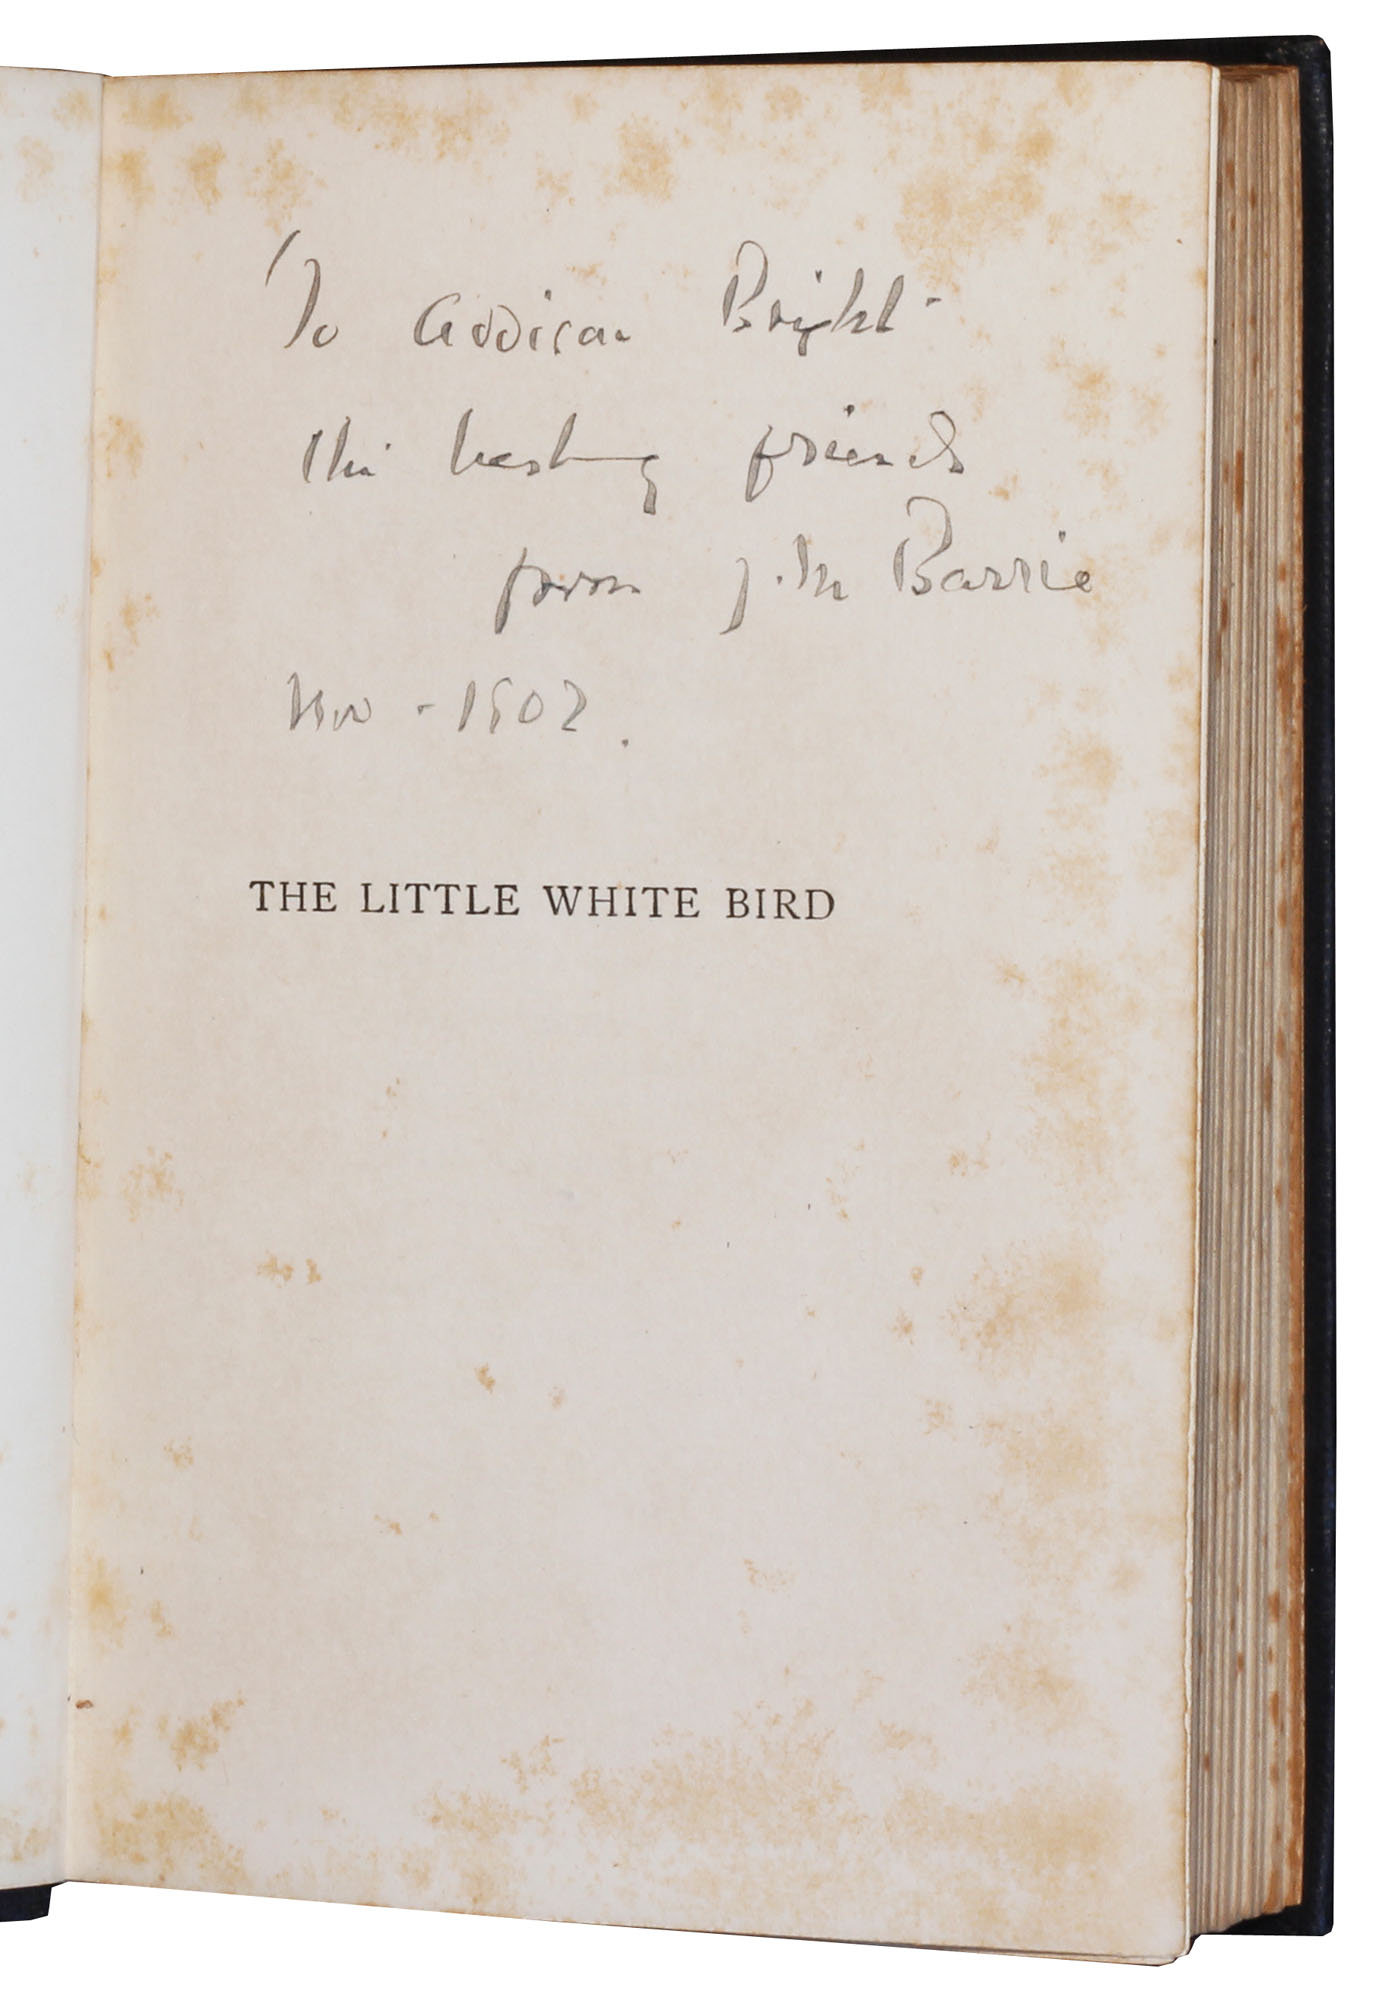 To Addison Bright
the best of friends
from J. M Barrie
Nov - 1902.
THE LITTLE WHITE BIRD